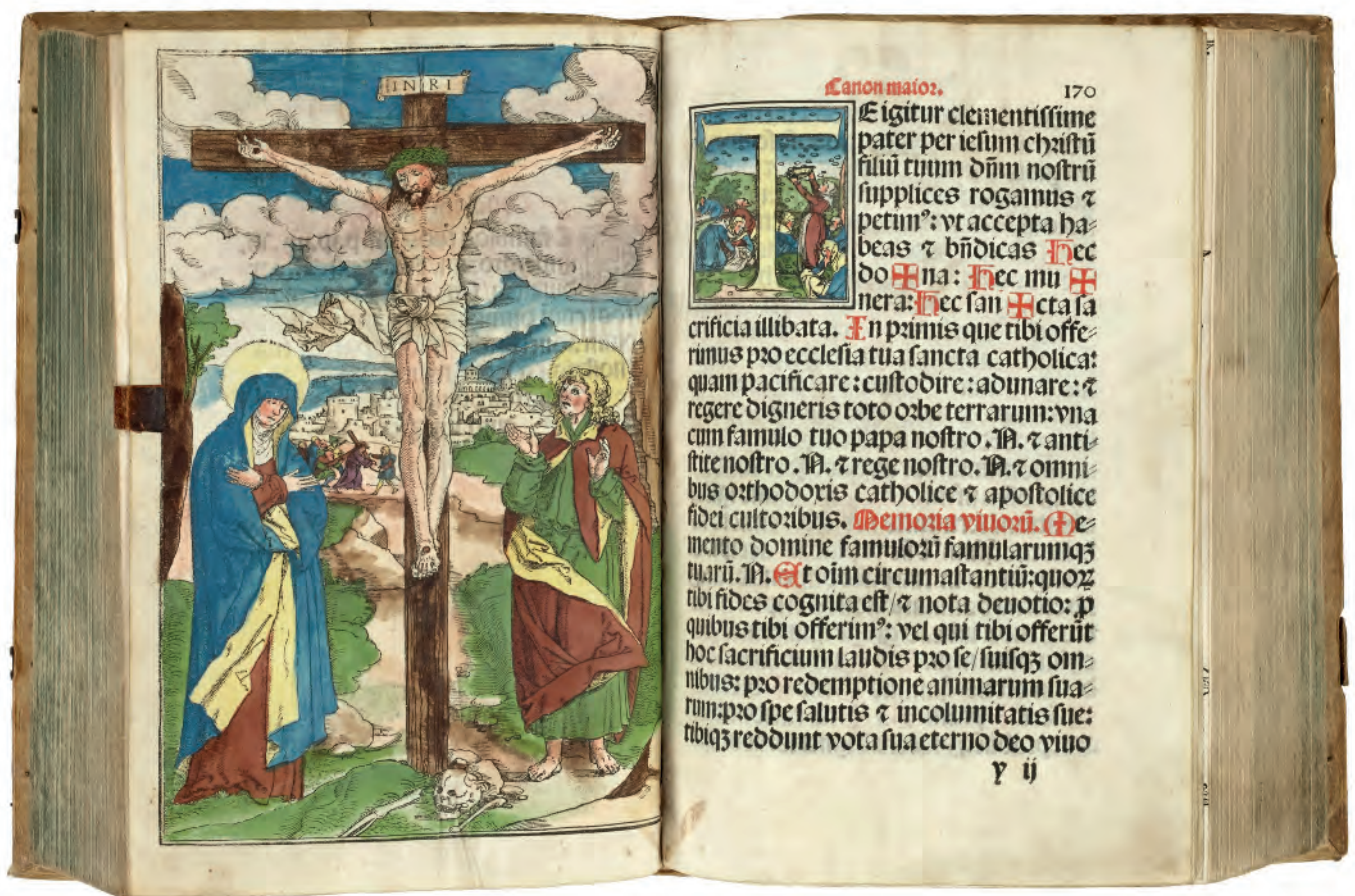 INRI
Canon maior.
170
TE igitur clementissime
pater per iesum christū
filiū tuum dn̄m nostrū
supplices rogamus ⁊
petimꝰ: vt accepta ha⸗
beas ⁊ bn̄dicas Hec
do ✠ na: Hec mu ✠
nera: Hec san ✠ cta sa
crificia illibata. In primis que tibi offe⸗
rimus pro ecclesia tua sancta catholica:
quam pacificare: custodire: adunare: ⁊
regere digneris toto orbe terrarum: vna
cum famulo tuo papa nostro .N. ⁊ anti⸗
stite nostro .N. ⁊ rege nostro. N. ⁊ omni⸗
bus orthodoxis catholice ⁊ apostolice
fidei cultoribus. Memoria viuorū. Me⸗
mento domine famulorū famularumqꝫ
tuarū. N. Et oīm circumastantiū: quoꝝ
tibi fides cognita est/ ⁊ nota deuotio: ꝓ
quibus tibi offerimꝰ: vel qui tibi offerūt
hoc sacrificium laudis pro se/ suisqꝫ om⸗
nibus: pro redemptione animarum sua⸗
rum: pro spe salutis ⁊ incolumitatis sue:
tibiqꝫ reddunt vota sua eterno deo viuo
y ij